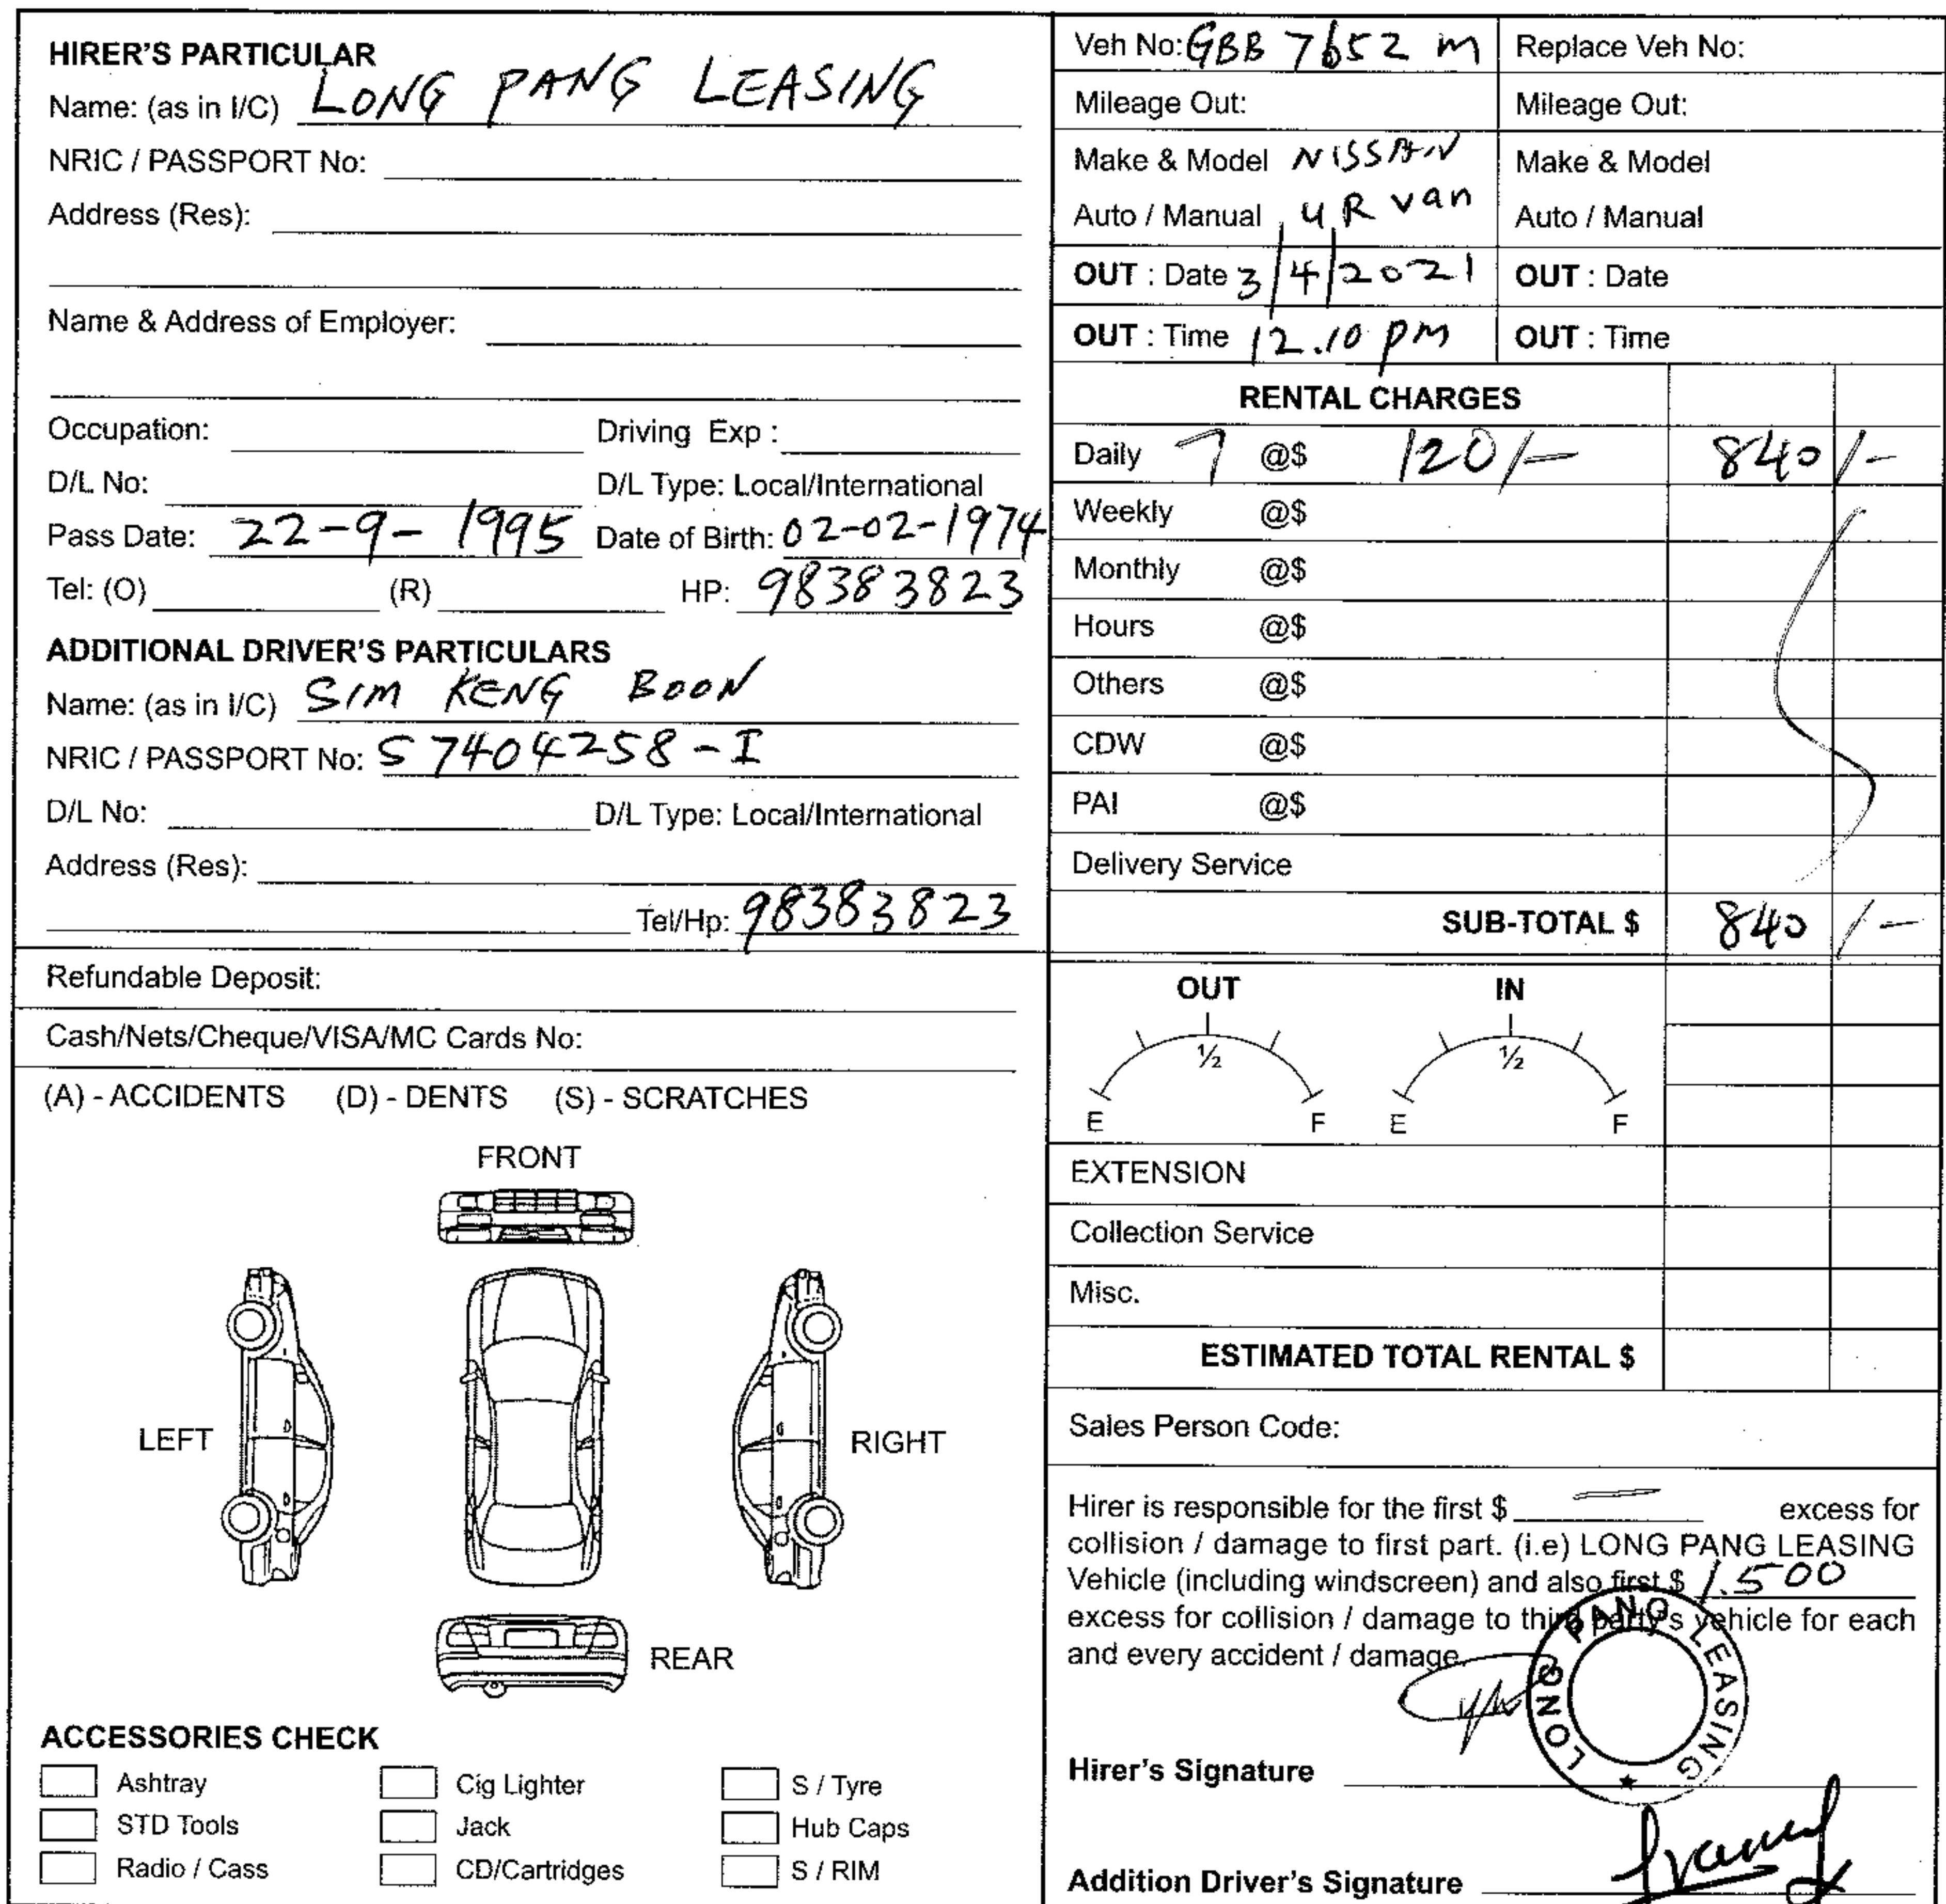 HIRER'S PARTICULAR
Name: (as in I/C) LONG PANG LEASING
NRIC / PASSPORT No:
Address (Res):
Name & Address of Employer:
Occupation: Driving Exp :
D/L No: D/L Type: Local/International
Pass Date: 22-9-1995 Date of Birth: 02-02-1974
Tel: (O) (R) HP: 98383823
ADDITIONAL DRIVER'S PARTICULARS
Name: (as in I/C) SIM KENG BOON
NRIC / PASSPORT No: S7404258-I
D/L No: D/L Type: Local/International
Address (Res):
Tel/Hp: 98383823
Refundable Deposit:
Cash/Nets/Cheque/VISA/MC Cards No:
(A) - ACCIDENTS (D) - DENTS (S) - SCRATCHES
FRONT
LEFT
RIGHT
REAR
ACCESSORIES CHECK
Ashtray Cig Lighter S / Tyre
STD Tools Jack Hub Caps
Radio / Cass CD/Cartridges S / RIM
Veh No: GBB 7652 M Replace Veh No:
Mileage Out: Mileage Out:
Make & Model NISSAN Make & Model
Auto / Manual UR van Auto / Manual
OUT : Date 3/4/2021 OUT : Date
OUT : Time 12.10 pm OUT : Time
RENTAL CHARGES
Daily 7 @$ 120/- 840/-
Weekly @$
Monthly @$
Hours @$
Others @$
CDW @$
PAI @$
Delivery Service
SUB-TOTAL $ 840/-
OUT IN
½ ½
E F E F
EXTENSION
Collection Service
Misc.
ESTIMATED TOTAL RENTAL $
Sales Person Code:
Hirer is responsible for the first $ — excess for
collision / damage to first part. (i.e) LONG PANG LEASING
Vehicle (including windscreen) and also first $ 1.500
excess for collision / damage to third party's vehicle for each
and every accident / damage.
LONG PANG LEASING ★
Hirer's Signature
Addition Driver's Signature